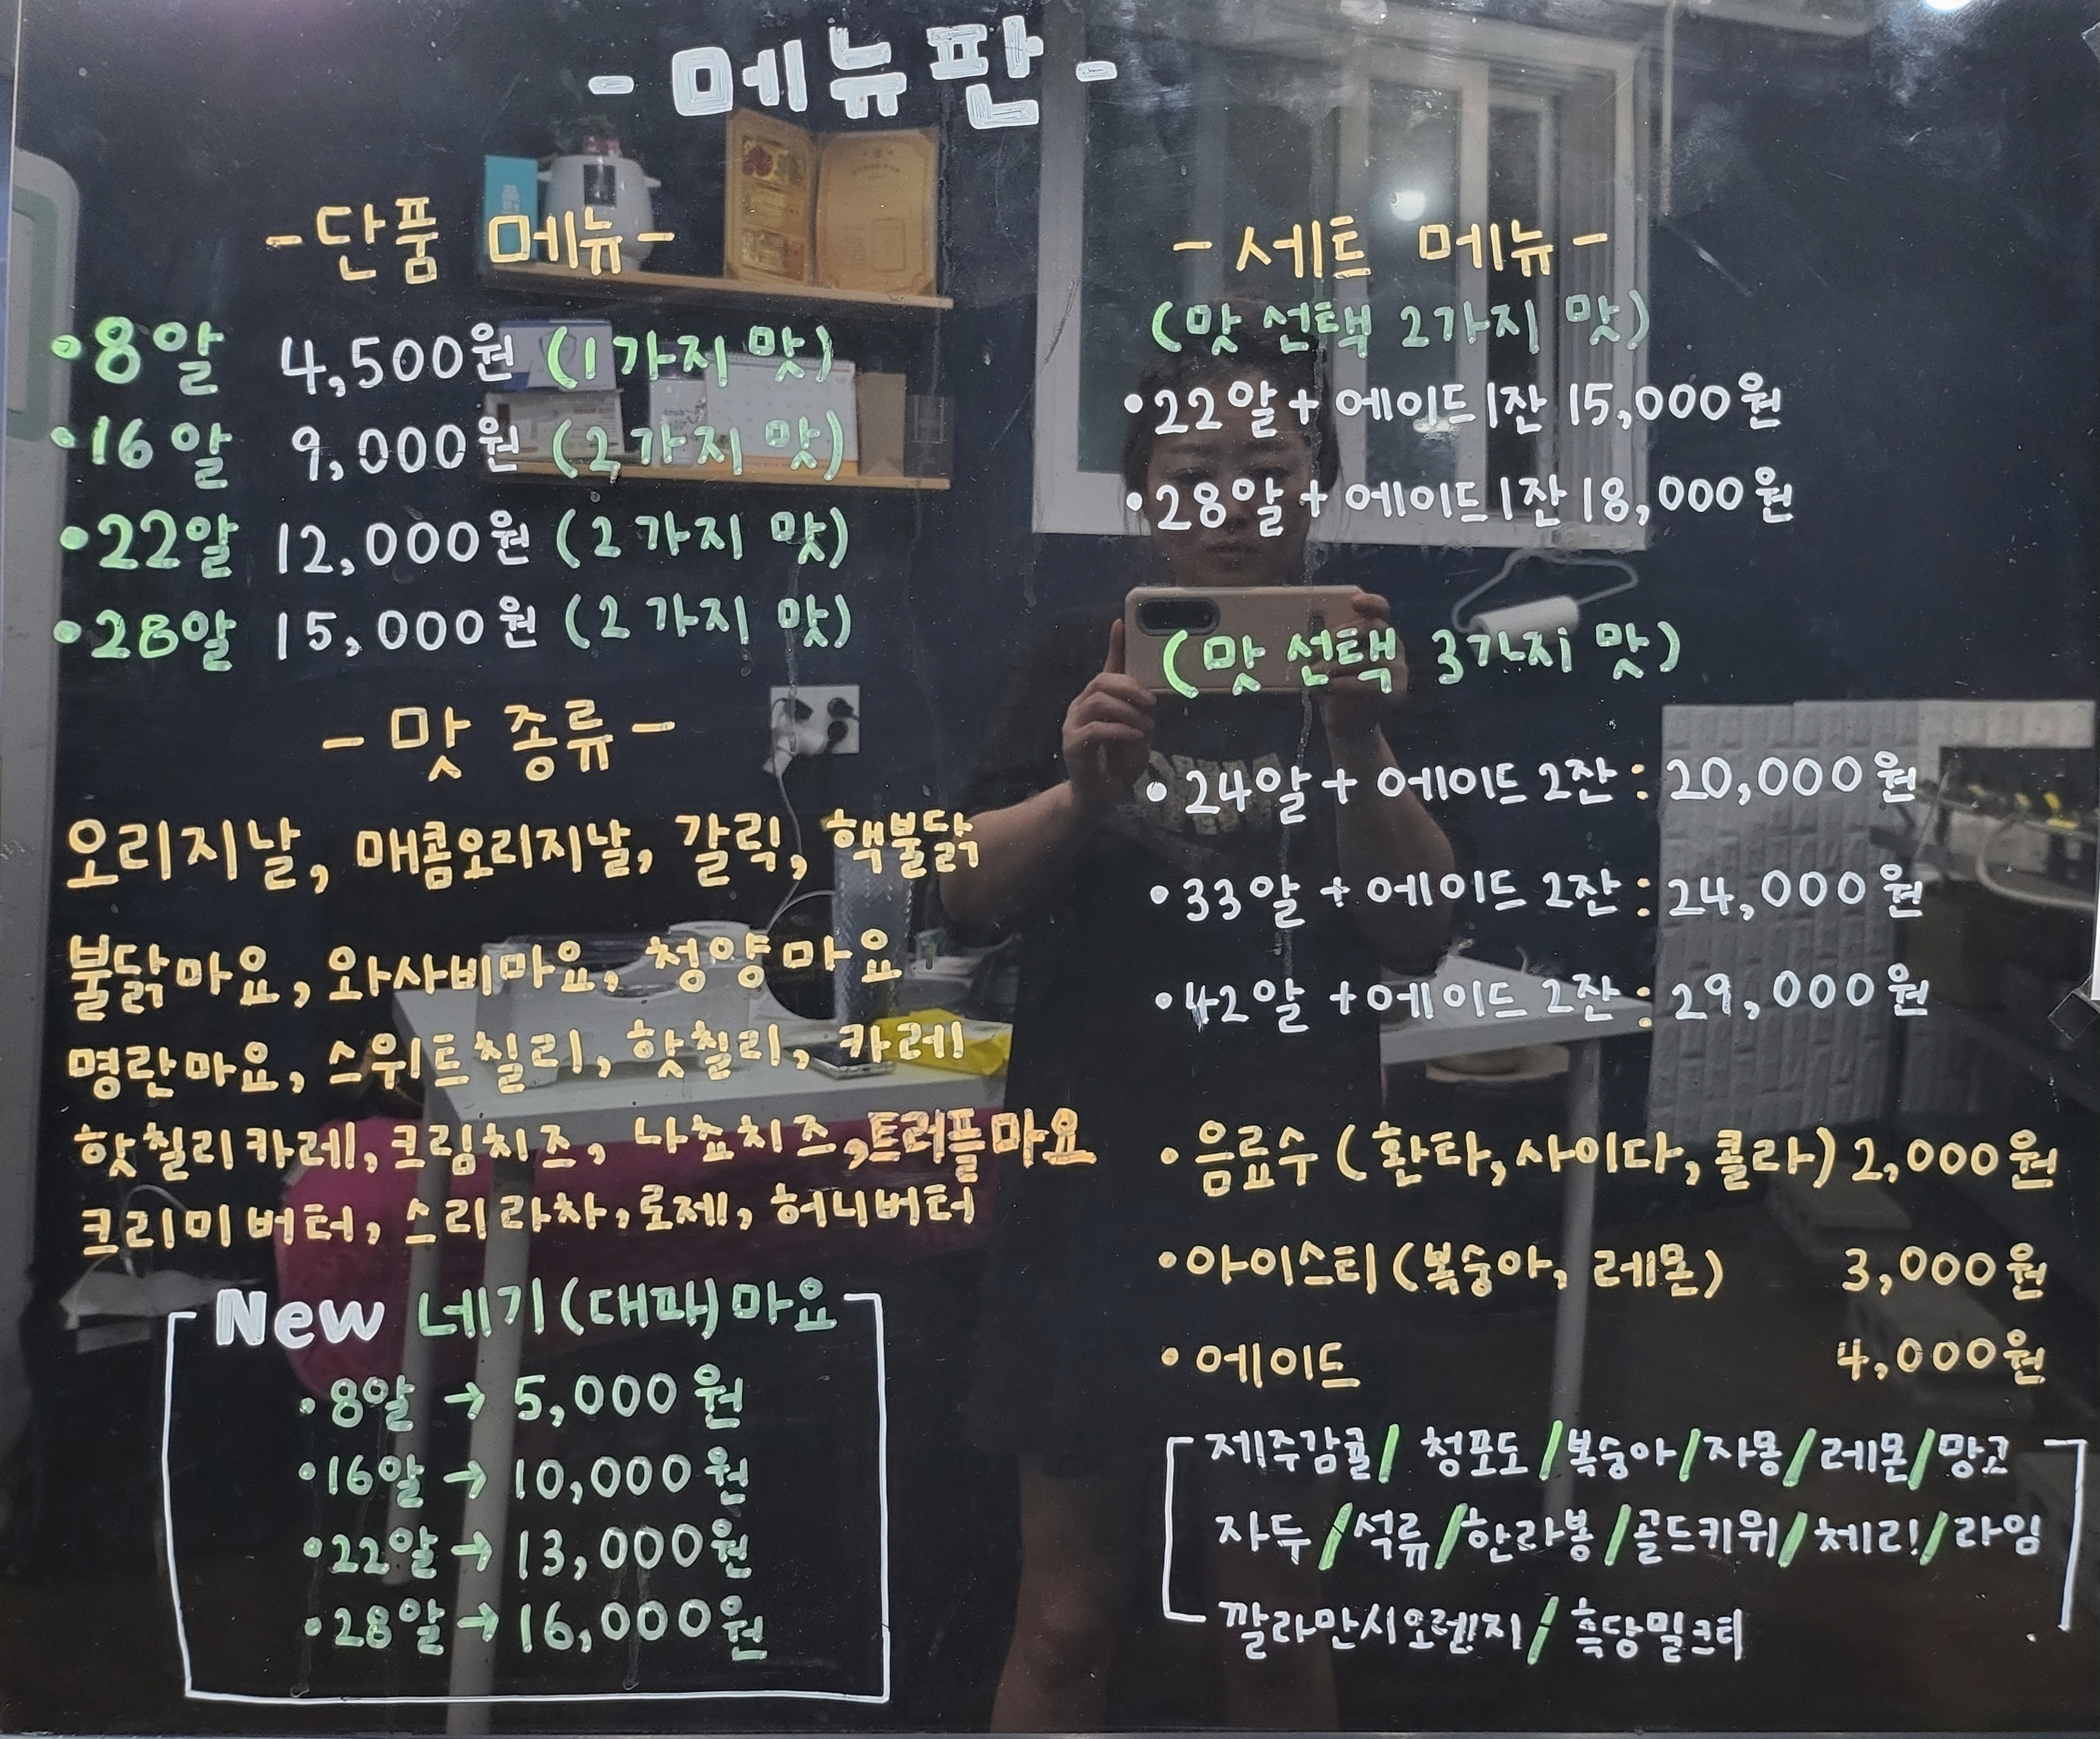 - 메뉴판 -
- 단품 메뉴 -
• 8알 4,500원 (1가지 맛)
• 16알 9,000원 (2가지 맛)
• 22알 12,000원 (2가지 맛)
• 28알 15,000원 (2가지 맛)
- 맛 종류 -
오리지날, 매콤오리지날, 갈릭, 핵불닭
불닭마요, 와사비마요, 청양마요
명란마요, 스위트칠리, 핫칠리, 카레
핫칠리카레, 크림치즈, 나쵸치즈, 트러플마요
크리미버터, 스리라차, 로제, 허니버터
New 네기(대파)마요
• 8알 → 5,000원
• 16알 → 10,000원
• 22알 → 13,000원
• 28알 → 16,000원
- 세트 메뉴 -
(맛 선택 2가지 맛)
• 22알 + 에이드 1잔 15,000원
• 28알 + 에이드 1잔 18,000원
(맛 선택 3가지 맛)
• 24알 + 에이드 2잔 : 20,000원
• 33알 + 에이드 2잔 : 24,000원
• 42알 + 에이드 2잔 : 29,000원
• 음료수 (환타, 사이다, 콜라) 2,000원
• 아이스티 (복숭아, 레몬) 3,000원
• 에이드 4,000원
제주감귤 / 청포도 / 복숭아 / 자몽 / 레몬 / 망고
자두 / 석류 / 한라봉 / 골드키위 / 체리 / 라임
깔라만시오렌지 / 흑당밀크티